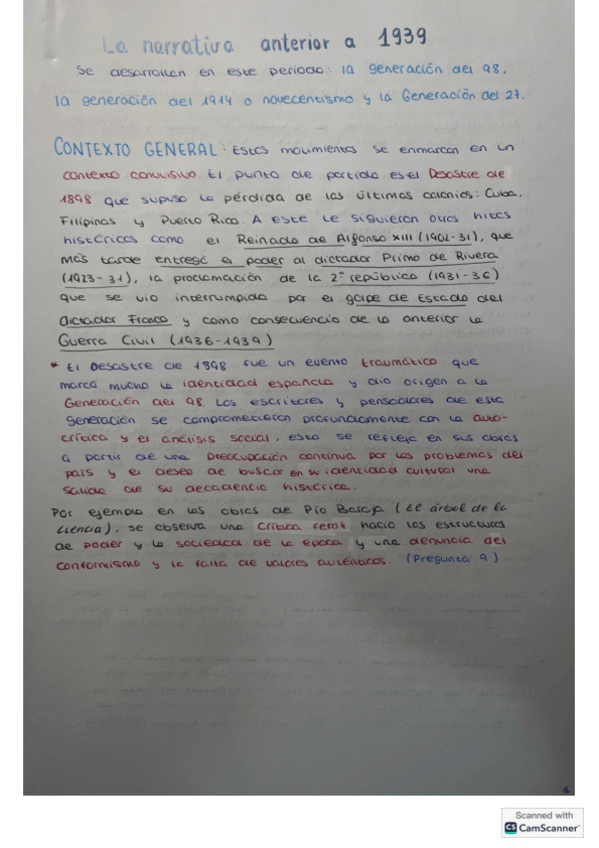 La narrativa anterior a 1939
Se desarrollan en este periodo: la generación del 98,
la generación del 1914 o novecentismo y la Generación del 27.
CONTEXTO GENERAL: Estos movimientos se enmarcan en un
contexto convulsivo. El punto de partida es el Desastre de
1898 que supuso la pérdida de las últimas colonias: Cuba,
Filipinas y Puerto Rico. A este le siguieron otros hitos
históricos como el Reinado de Alfonso XIII (1902-31), que
más tarde entregó el poder al dictador Primo de Rivera
(1923-31), la proclamación de la 2ª república (1931-36)
que se vio interrumpida por el golpe de Estado del
dictador Franco y como consecuencia de lo anterior la
Guerra Civil (1936-1939)
* El Desastre de 1898 fue un evento traumático que
marca mucho la identidad española y dio origen a la
Generación del 98. Los escritores y pensadores de esta
generación se comprometieron profundamente con la auto-
crítica y el análisis social, esto se refleja en sus obras
a partir de una preocupación continua por los problemas del
país y el deseo de buscar en su identidad cultural una
salida de su decadencia histórica.
Por ejemplo en las obras de Pío Baroja (El árbol de la
ciencia), se observa una crítica feroz hacia las estructuras
de poder y la sociedad de la época y una denuncia del
conformismo y la falta de valores auténticos. (Pregunta 9)
1
Scanned with
CS CamScanner